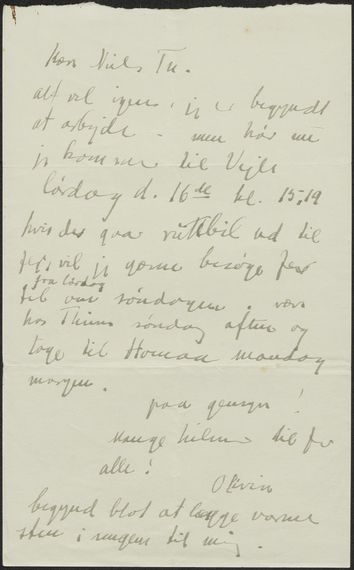 Kære Niels Th.
alt vel igen, jeg er begyndt
at arbejde - men hør nu
jeg kommer til Vejle
lørdag d. 16de kl. 15,19
hvis der gaar rutebil ud til
jer, vil jeg gerne besøge jer
fra lørdag
til om søndagen. være
hos Thims søndag aften og
tage til Homaa mandag
morgen.
paa gensyn!
mange hilsner til jer
alle!
Olivia
begynd blot at lægge varme
sten i sengen til mig.